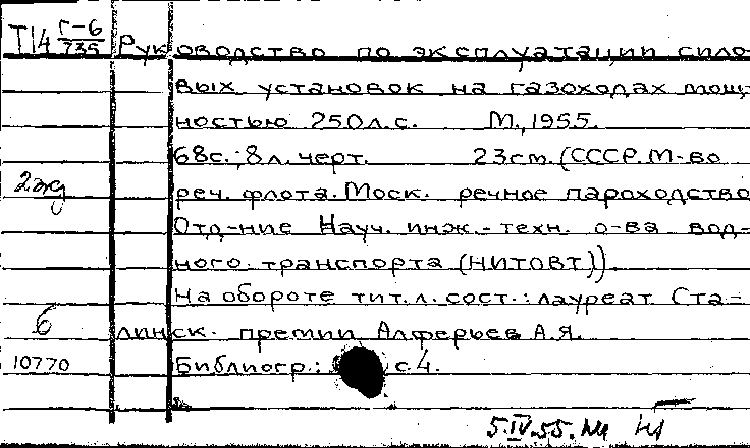 Т14 Г-6/735 Руководство по эксплуатации сило-
вых установок на газоходах мощ-
ностью 250 л.с. М., 1955.
68с.; 8 л. черт. 23 см. (СССР. М-во
2жд реч. флота. Моск. речное пароходство
Отд-ние Науч. инж.-техн. о-ва вод-
ного транспорта (НИТОВТ)).
На обороте тит. л. сост.: лауреат Ста-
6 линск. премии Алферьев А.Я.
10770 Библиогр.: с. 4.
5.IV.55.